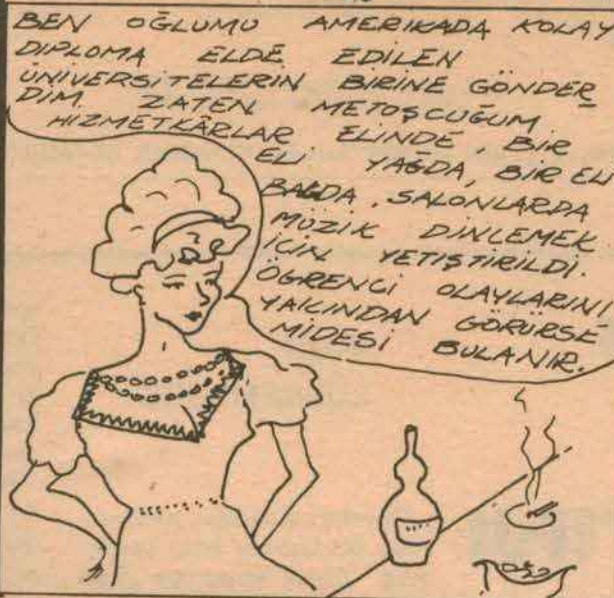 BEN OĞLUMU AMERIKADA KOLAY
DIPLOMA ELDE EDILEN
ÜNIVERSİTELERIN BIRINE GÖNDER
DIM. ZATEN METOŞCUĞUM
HIZMETKÂRLAR ELINDE, BIR
ELİ YAĞDA, BIR ELİ
BALDA, SALONLARDA
MÜZIK DINLEMEK
IÇIN YETIŞTIRILDI.
ÖĞRENCI OLAYLARINI
YAKINDAN GÖRÜRSE
MIDESİ BULANIR.